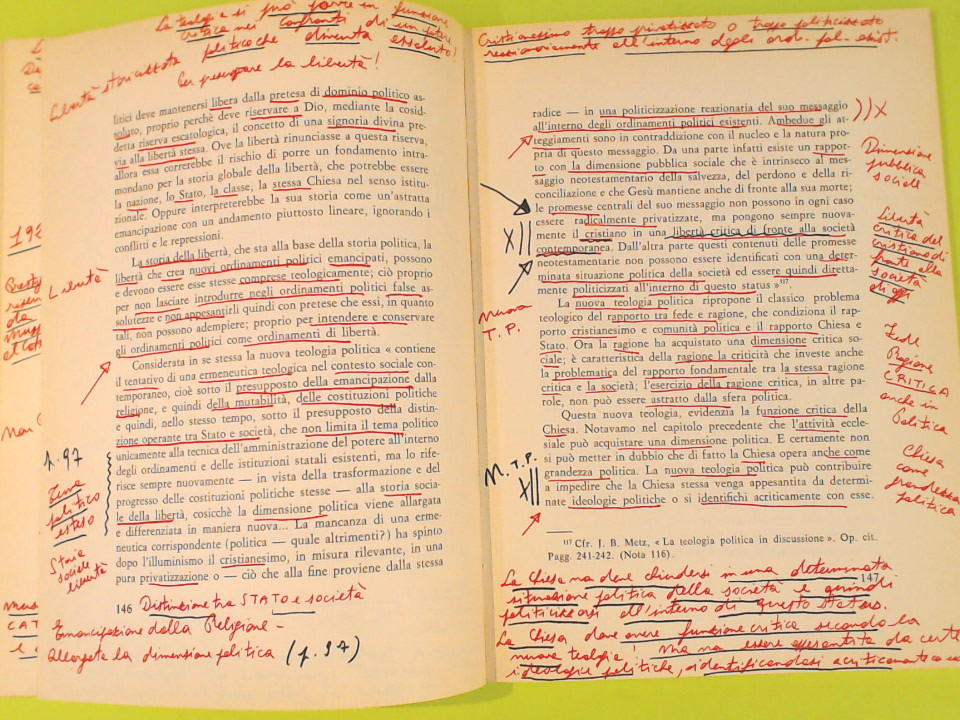 La teologia si può porre in funzione
critica nei confronti di un potere
politico che diventa assoluto!
Libertà storicizzata
Per preservare la libertà!
litici deve mantenersi libera dalla pretesa di dominio politico as-
soluto, proprio perchè deve riservare a Dio, mediante la cosid-
detta riserva escatologica, il concetto di una signoria divina pre-
via alla libertà stessa. Ove la libertà rinunciasse a questa riserva,
allora essa correrebbe il rischio di porre un fondamento intra-
mondano per la storia globale della libertà, che potrebbe essere
la nazione, lo Stato, la classe, la stessa Chiesa nel senso istitu-
zionale. Oppure interpreterebbe la sua storia come un'astratta
emancipazione con un andamento piuttosto lineare, ignorando i
conflitti e le repressioni.
La storia della libertà, che sta alla base della storia politica, la
libertà che crea nuovi ordinamenti politici emancipati, possono
e devono essere esse stesse comprese teologicamente; ciò proprio
per non lasciare introdurre negli ordinamenti politici false as-
solutezze e non appesantirli quindi con pretese che essi, in quanto
tali, non possono adempiere; proprio per intendere e conservare
gli ordinamenti politici come ordinamenti di libertà.
Considerata in se stessa la nuova teologia politica « contiene
il tentativo di una ermeneutica teologica nel contesto sociale con-
temporaneo, cioè sotto il presupposto della emancipazione dalla
religione, e quindi della mutabilità, delle costituzioni politiche
e quindi, nello stesso tempo, sotto il presupposto della distin-
zione operante tra Stato e società, che non limita il tema politico
unicamente alla tecnica dell'amministrazione del potere all'interno
degli ordinamenti e delle istituzioni statali esistenti, ma lo rife-
risce sempre nuovamente — in vista della trasformazione e del
progresso delle costituzioni politiche stesse — alla storia socia-
le della libertà, cosicchè la dimensione politica viene allargata
e differenziata in maniera nuova... La mancanza di una erme-
neutica corrispondente (politica — quale altrimenti?) ha spinto
dopo l'illuminismo il cristianesimo, in misura rilevante, in una
pura privatizzazione o — ciò che alla fine proviene dalla stessa
Libertà
p. 97
Tema
politico
esteso
Storia
sociale
libertà
146 Distinzione tra STATO e società
Emancipazione dalla Religione -
Allargata la dimensione politica (p. 97)
Cristianesimo troppo privatizzato o troppo politicizzato
reazionariamente all'interno degli ord. pol. esist.
radice — in una politicizzazione reazionaria del suo messaggio
all'interno degli ordinamenti politici esistenti. Ambedue gli at-
teggiamenti sono in contraddizione con il nucleo e la natura pro-
pria di questo messaggio. Da una parte infatti esiste un rappor-
to con la dimensione pubblica sociale che è intrinseco al mes-
saggio neotestamentario della salvezza, del perdono e della ri-
conciliazione e che Gesù mantiene anche di fronte alla sua morte;
le promesse centrali del suo messaggio non possono in ogni caso
essere radicalmente privatizzate, ma pongono sempre nuova-
mente il cristiano in una libertà critica di fronte alla società
contemporanea. Dall'altra parte questi contenuti delle promesse
neotestamentarie non possono essere identificati con una deter-
minata situazione politica della società ed essere quindi diretta-
mente politicizzati all'interno di questo status »¹¹⁷.
La nuova teologia politica ripropone il classico problema
teologico del rapporto tra fede e ragione, che condiziona il rap-
porto cristianesimo e comunità politica e il rapporto Chiesa e
Stato. Ora la ragione ha acquistato una dimensione critica so-
ciale; è caratteristica della ragione la criticità che investe anche
la problematica del rapporto fondamentale tra la stessa ragione
critica e la società; l'esercizio della ragione critica, in altre pa-
role, non può essere astratto dalla sfera politica.
Questa nuova teologia, evidenzia la funzione critica della
Chiesa. Notavamo nel capitolo precedente che l'attività eccle-
siale può acquistare una dimensione politica. E certamente non
si può metter in dubbio che di fatto la Chiesa opera anche come
grandezza politica. La nuova teologia politica può contribuire
a impedire che la Chiesa stessa venga appesantita da determi-
nate ideologie politiche o si identifichi acriticamente con esse.
¹¹⁷ Cfr. J. B. Metz, « La teologia politica in discussione ». Op. cit.
Pagg. 241-242. (Nota 116).
147
XII
nuova
T. P.
N. T. P.
XII
X
Dimensione
pubblica
sociale
Libertà
critica del
cristiano di
fronte alla
società
di oggi
Fede
Ragione
CRITICA
anche in
Politica
Chiesa
come
grandezza
politica
La Chiesa non deve chiudersi in una determinata
situazione politica della società e quindi
politicizzarsi all'interno di questo status.
La Chiesa deve avere funzione critica secondo la
nuova teologia! Ma non essere appesantita da certe
ideologie politiche, identificandosi acriticamente con